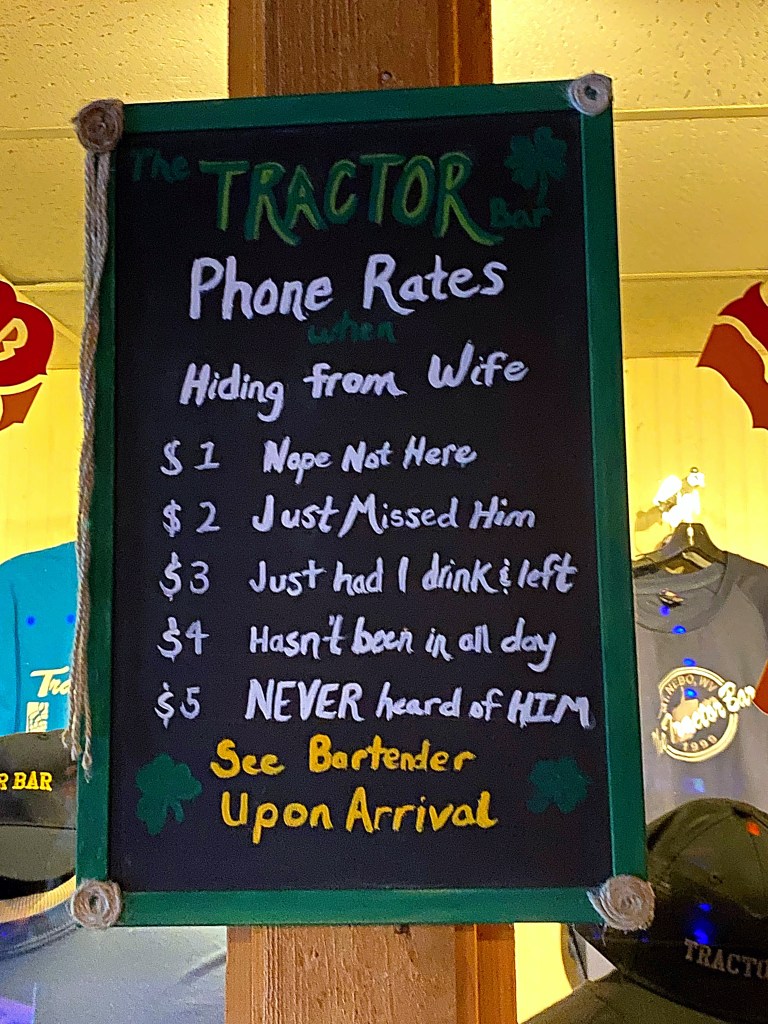 The TRACTOR Bar
Phone Rates
when
Hiding from Wife
$1 Nope Not Here
$2 Just Missed Him
$3 Just had 1 drink & left
$4 Hasn't been in all day
$5 NEVER heard of HIM
See Bartender
Upon Arrival
R BAR
MT. NEBO, WV
The Tractor Bar
1999
TRACTO